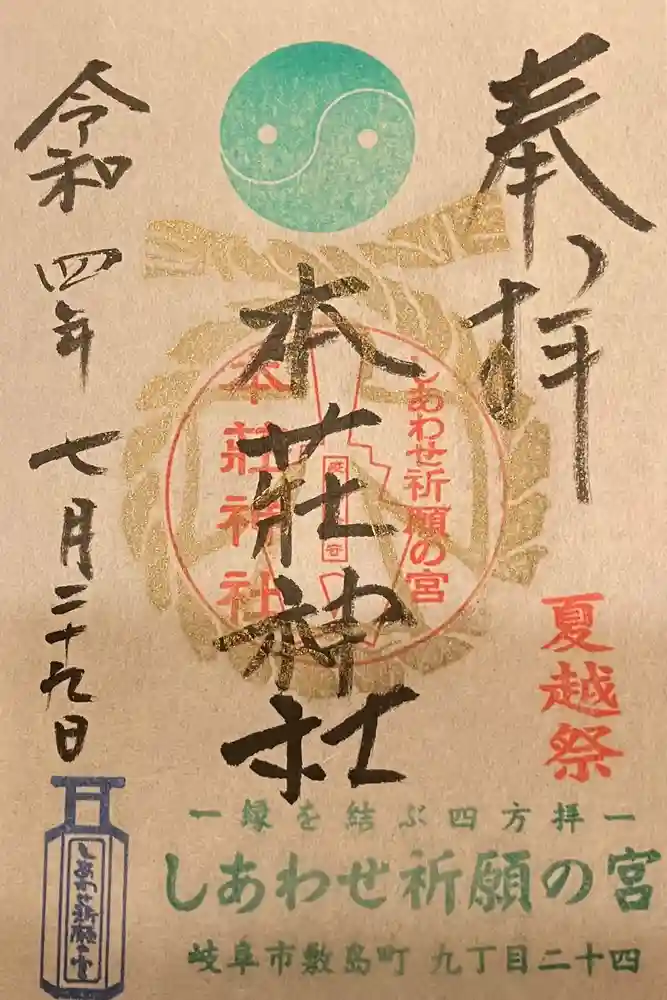 奉拝
しあわせ祈願の宮
本荘神社
本荘神社
令和四年七月二十九日
夏越祭
しあわせ祈願の宮
一縁を結ぶ四方拝一
しあわせ祈願の宮
岐阜市敷島町 九丁目二十四